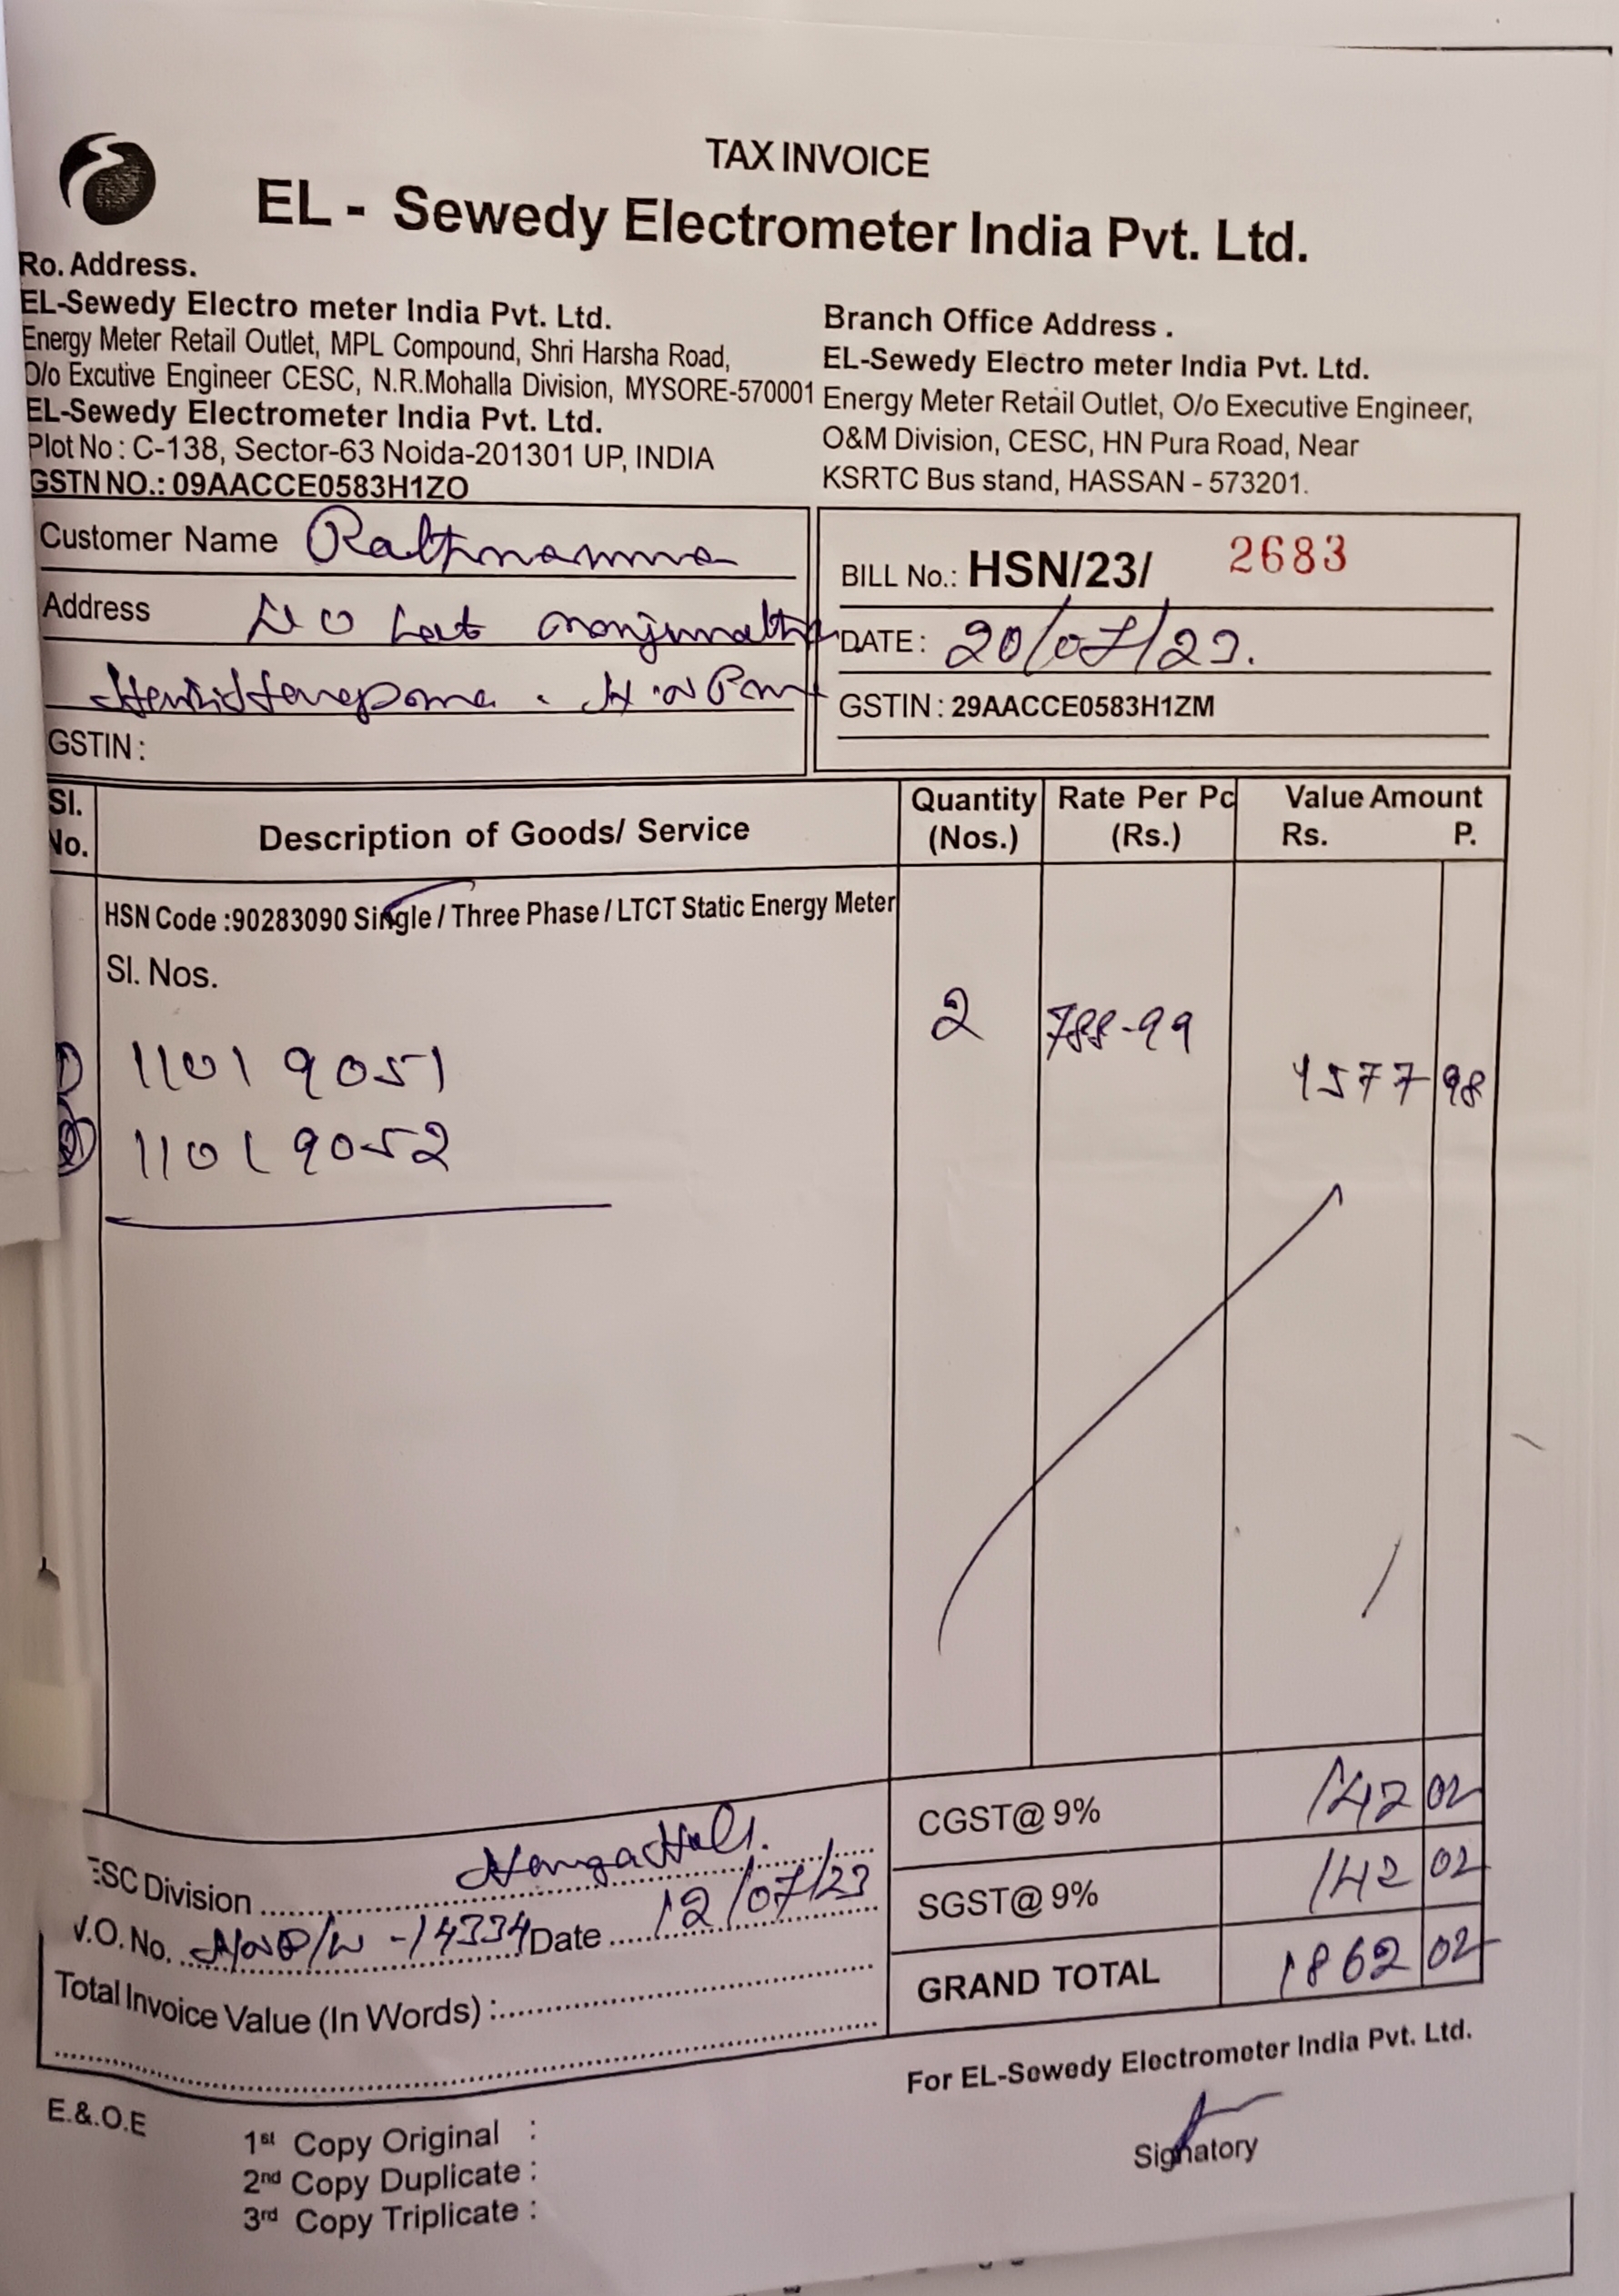 TAX INVOICE
EL - Sewedy Electrometer India Pvt. Ltd.
Ro. Address.
EL-Sewedy Electro meter India Pvt. Ltd.
Energy Meter Retail Outlet, MPL Compound, Shri Harsha Road,
O/o Excutive Engineer CESC, N.R.Mohalla Division, MYSORE-570001
EL-Sewedy Electrometer India Pvt. Ltd.
Plot No : C-138, Sector-63 Noida-201301 UP, INDIA
GSTN NO.: 09AACCE0583H1ZO
Branch Office Address .
EL-Sewedy Electro meter India Pvt. Ltd.
Energy Meter Retail Outlet, O/o Executive Engineer,
O&M Division, CESC, HN Pura Road, Near
KSRTC Bus stand, HASSAN - 573201.
Customer Name Rathnamma
Address
GSTIN :
BILL No.: HSN/23/ 2683
DATE : 20/07/23.
GSTIN : 29AACCE0583H1ZM
Sl. No. Description of Goods/ Service Quantity (Nos.) Rate Per Pc (Rs.) Value Amount Rs. P.
HSN Code :90283090 Single / Three Phase / LTCT Static Energy Meter
Sl. Nos.
2 788-99
1) 11019051 1577 98
2) 11019052
CGST@ 9% 142 02
SGST@ 9% 142 02
GRAND TOTAL 1862 02
ESC Division
V.O. No. -14334 Date 12/07/23
Total Invoice Value (In Words) :
For EL-Sewedy Electrometer India Pvt. Ltd.
Signatory
E.&.O.E
1st Copy Original :
2nd Copy Duplicate :
3rd Copy Triplicate :